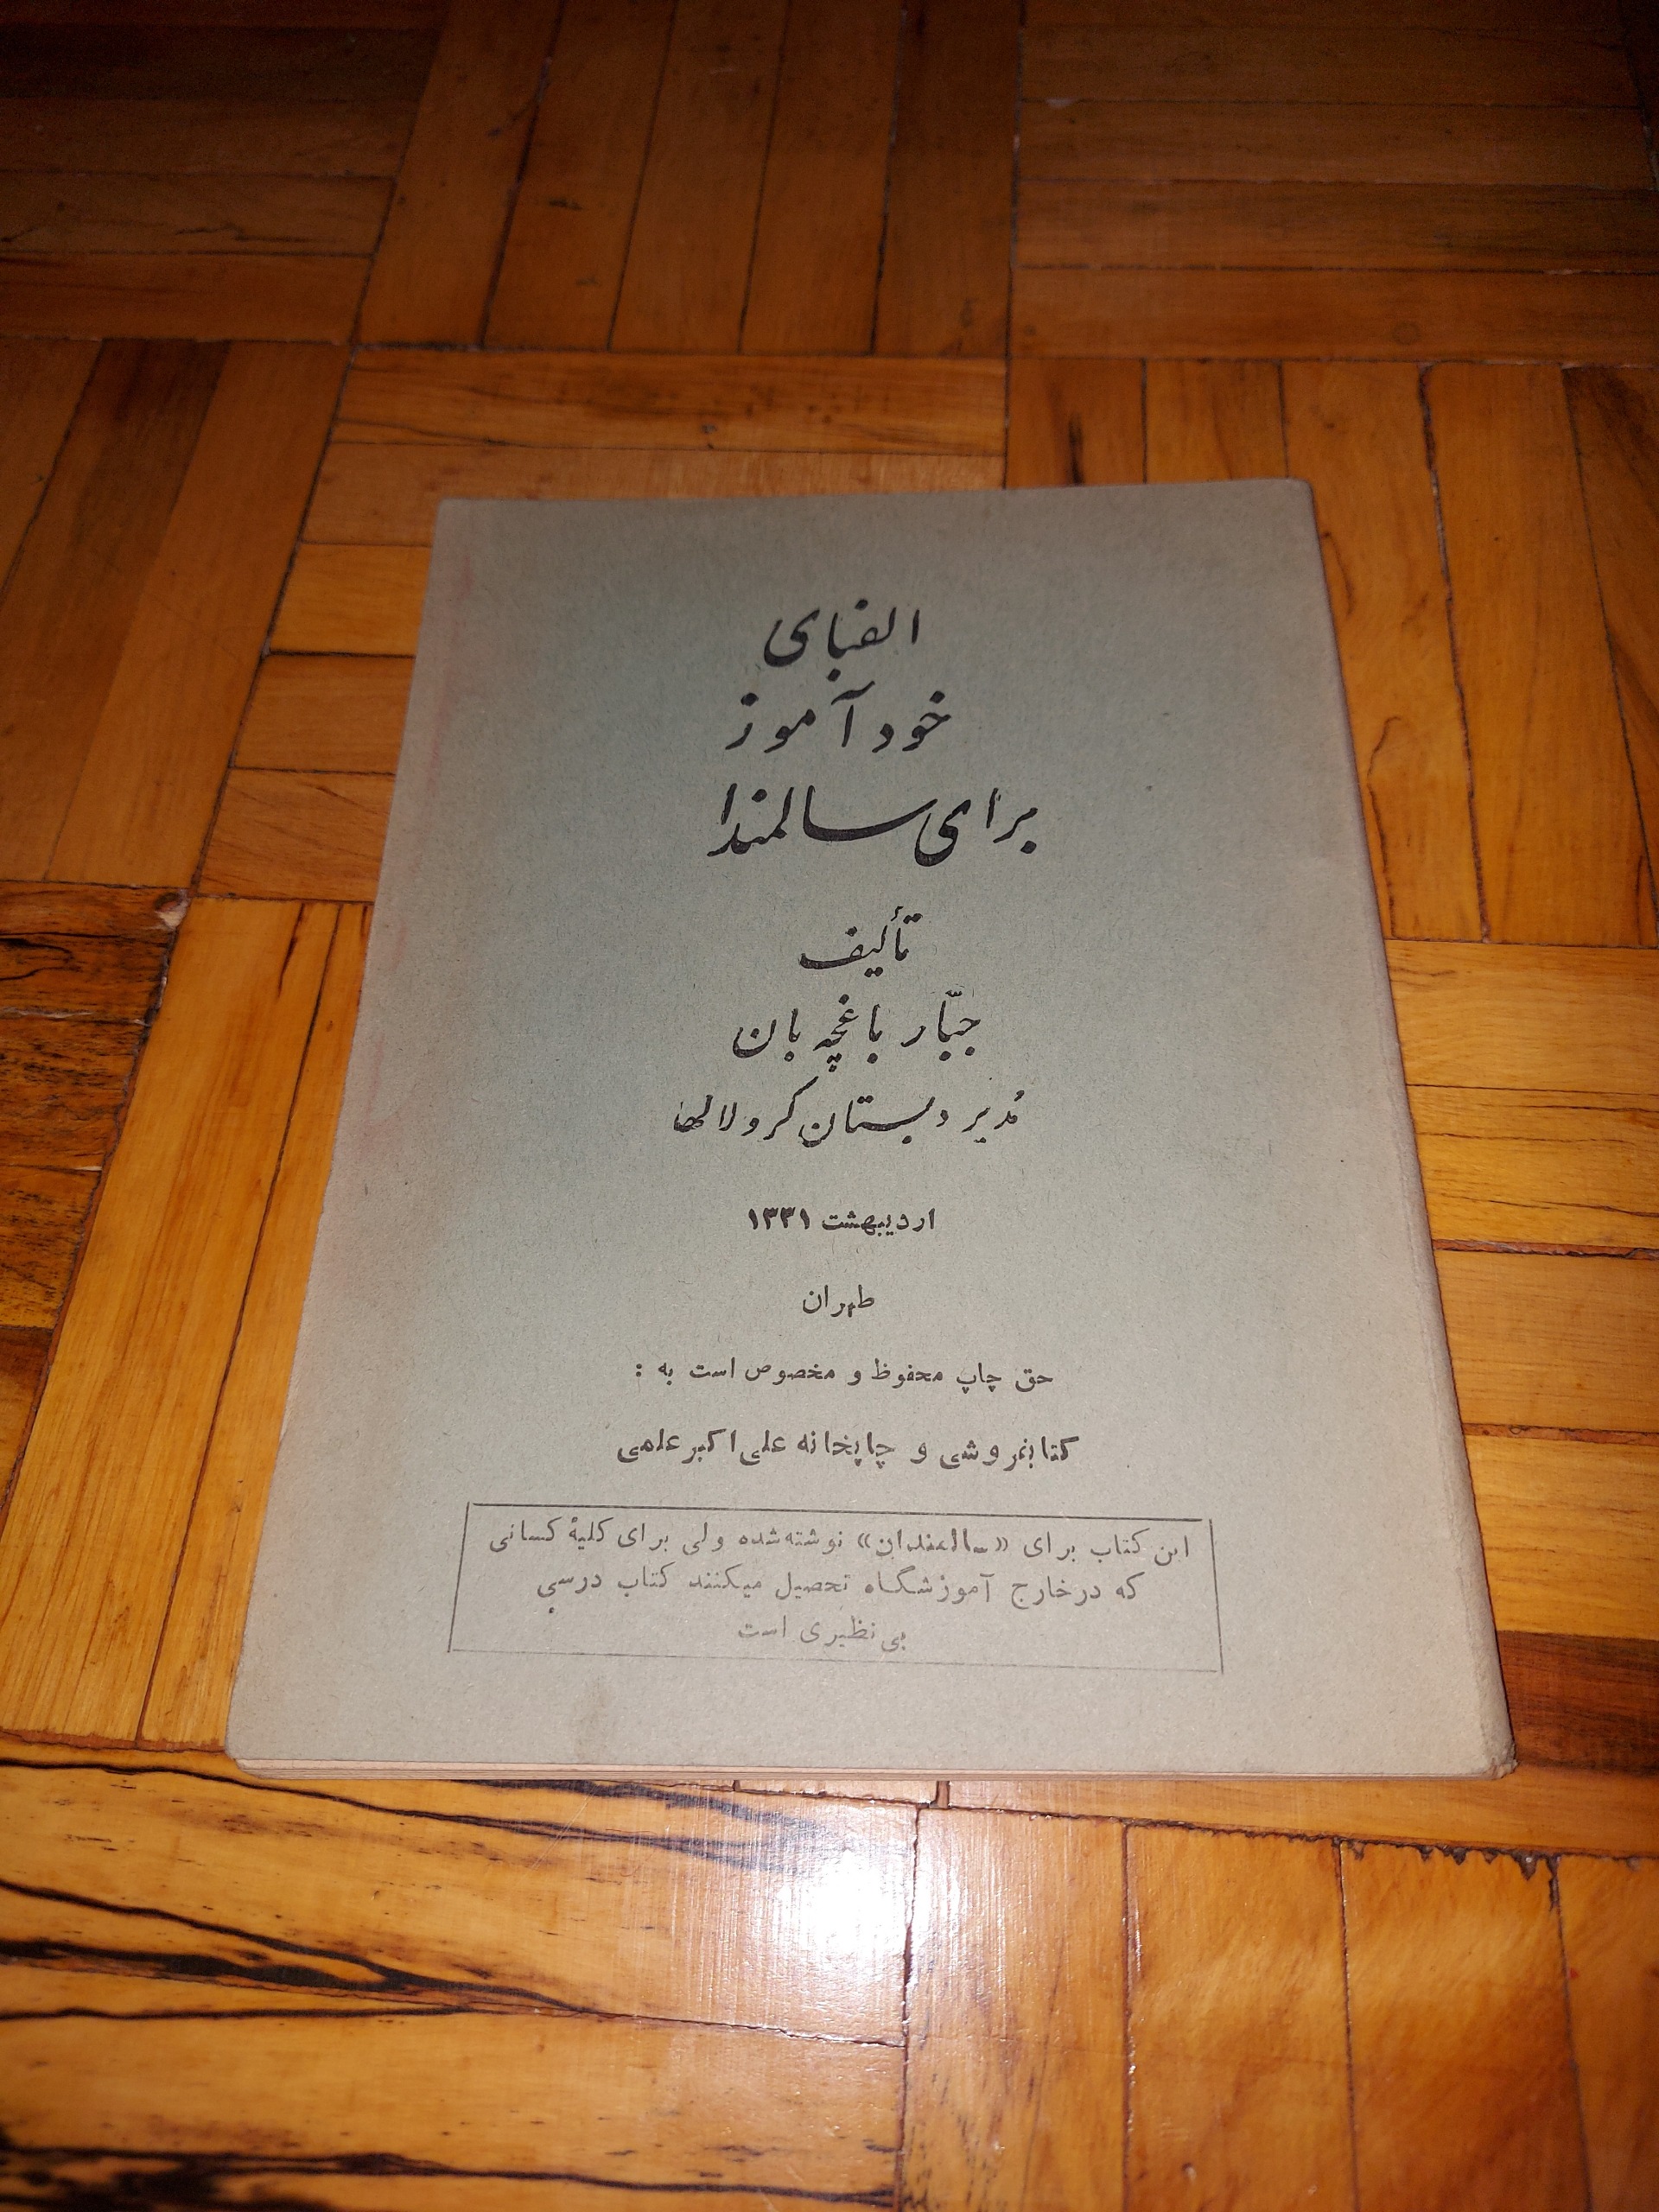 الفبای
خودآموز
برای سالمندا
تألیف
جبّار باغچه بان
مُدیر دبستان کرولالها
اردیبهشت ۱۳۳۱
طهران
حق چاپ محفوظ و مخصوص است به :
کتابفروشی و چاپخانه علی اکبر علمی
این کتاب برای «سالمندان» نوشته شده ولی برای کلیهٔ کسانی
که در خارج آموزشگاه تحصیل میکنند کتاب درسی
بی نظیری است